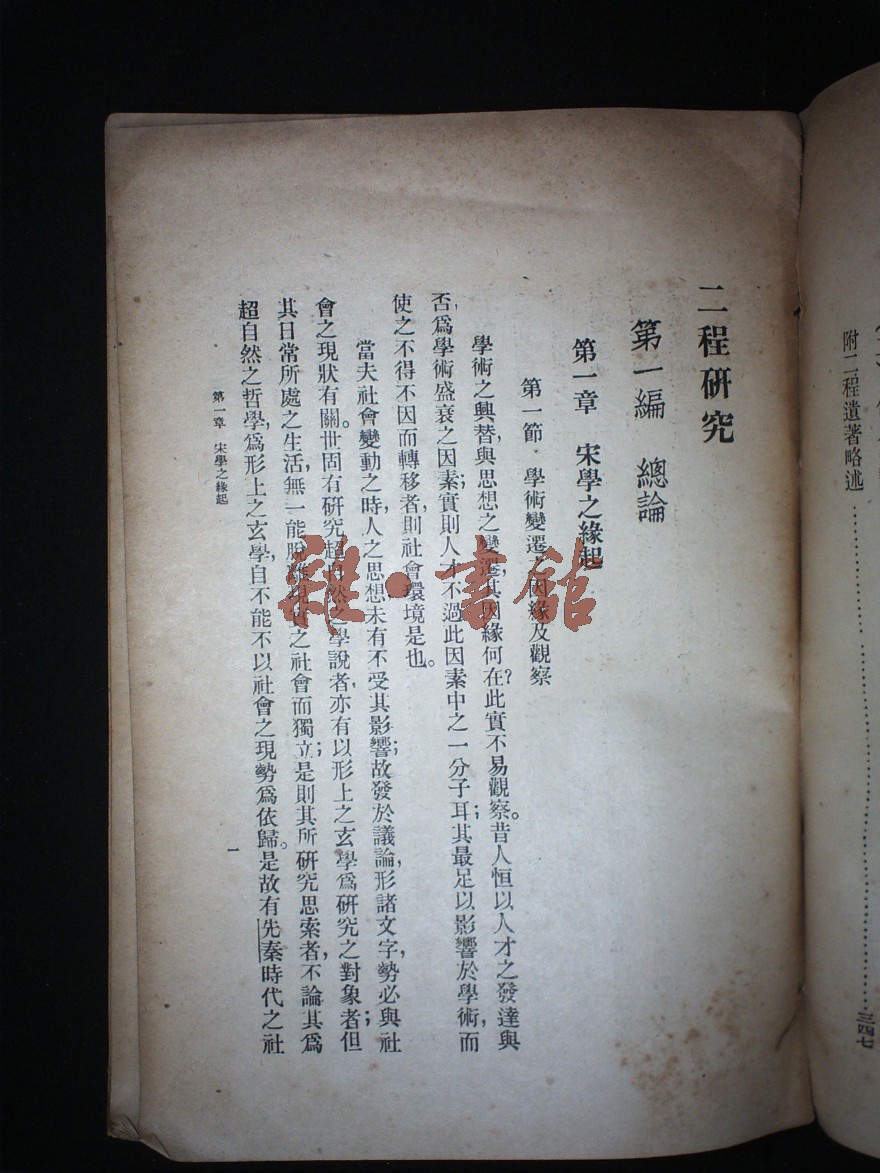 附二程遺著略述……………………………三四七
二程研究
第一編　總論
第一章　宋學之緣起
第一節　學術變遷之因緣及觀察
學術之興替，與思想之變遷，其因緣何在？此實不易觀察。昔人恒以人才之發達與
否，爲學術盛衰之因素；實則人才不過此因素中之一分子耳；其最足以影響於學術，而
使之不得不因而轉移者，則社會環境是也。
當夫社會變動之時，人之思想未有不受其影響；故發於議論，形諸文字，勢必與社
會之現狀有關。世固有研究超自然之學說者，亦有以形上之玄學爲研究之對象者；但
其日常所處之生活，無一能脫離現實之社會而獨立；是則其所研究思索者，不論其爲
超自然之哲學，爲形上之玄學，自不能不以社會之現勢爲依歸。是故有先秦時代之社
第一章　宋學之緣起
一
雜·書館